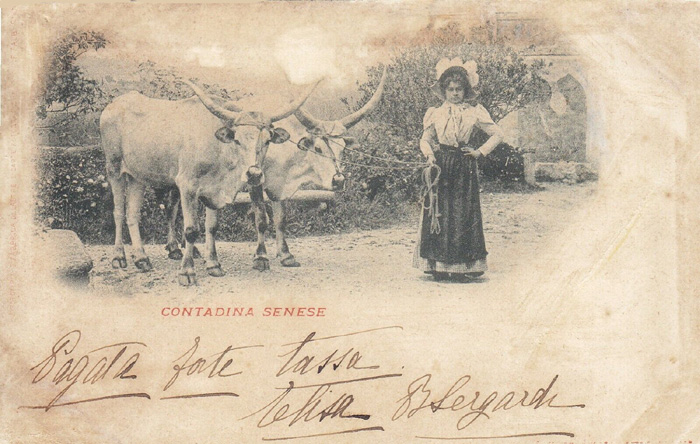 CONTADINA SENESE
Pagata forte tassa.
Elisa B Sergardi